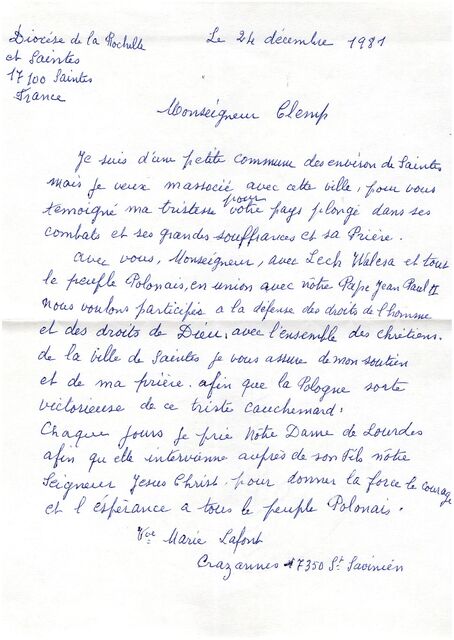 Diocèse de la Rochelle
et Saintes
17100 Saintes
France
Le 24 décembre 1981
Monseigneur Clemp
Je suis d'une petite commune des environ de Saintes
mais je veux massocié avec cette ville, pour vous
temoigné ma tristesse pour votre pays plongé dans ses
combats et ses grandes souffrances et sa Prière.
avec vous, Monseigneur, avec Lech Walesa et tout
le peuple Polonais, en union avec nôtre Pape Jean Paul II
nous voulons participée a la défense des droits de l'homme
et des droits de Dieu, avec l'ensemble des chrétiens.
de la ville de Saintes je vous assure de mon soutien
et de ma prière. afin que la Pologne sorte
victorieuse de ce triste cauchemard.
Chaque jours je prie Notre Dame de Lourdes
afin qu'elle intervienne auprès de son Fils nôtre
Seigneur Jesus Christ. pour donner la force le courage
et l'éspérance a tous le peuple Polonais.
Vve Marie Lafont
Crazannes 17350 St Savinien